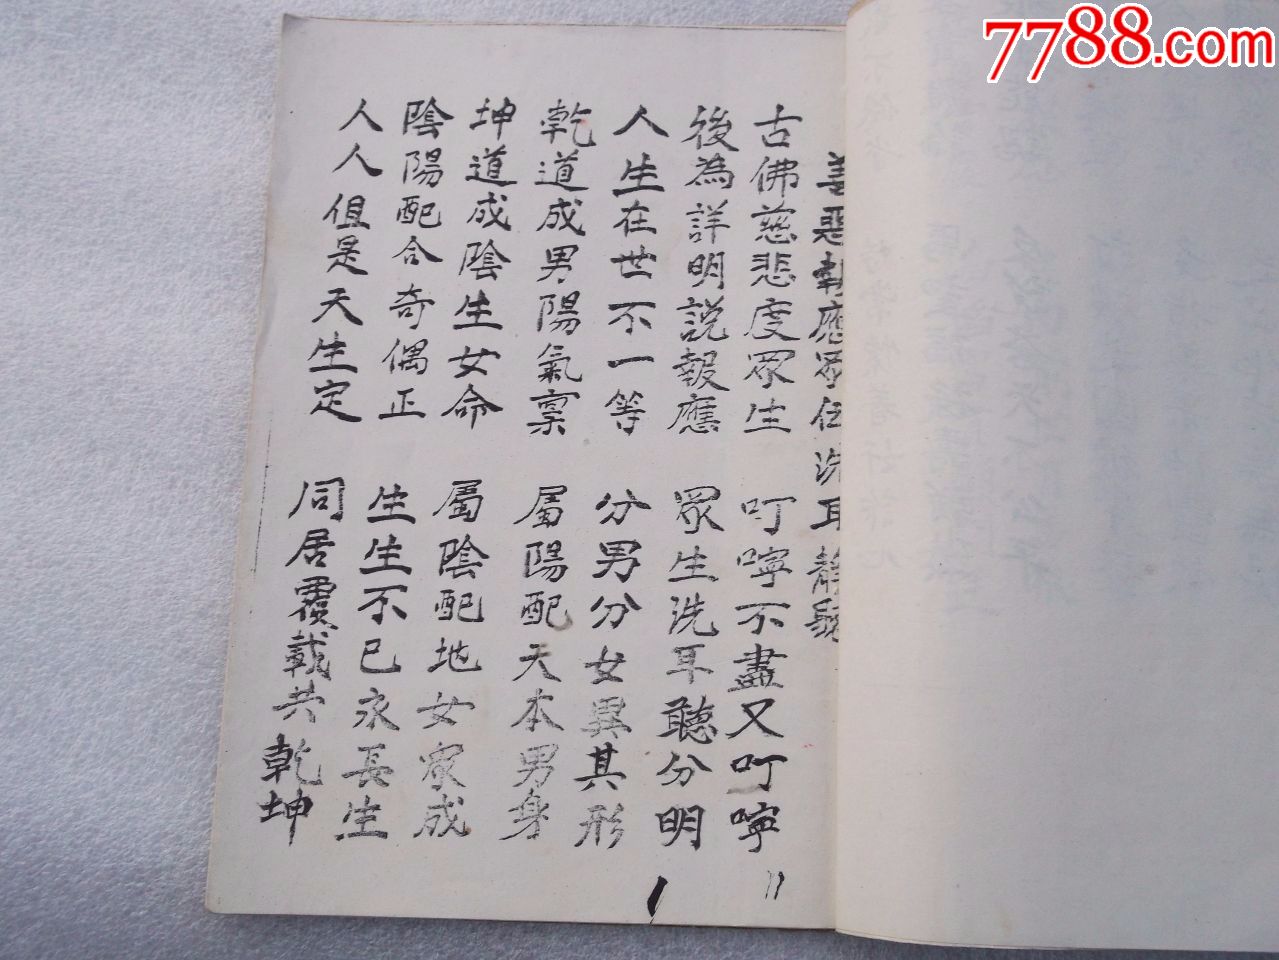 7788.com
善惡報應眾伍洗耳靜聽
古佛慈悲度眾生 叮嚀不盡又叮嚀
後為詳明説報應 眾生洗耳聽分明
人生在世不一等 分男分女異其形
乾道成男陽氣稟 屬陽配天本男身
坤道成陰生女命 屬陰配地女家成
陰陽配合奇偶正 生生不已永長生
人人但是天生定 同居覆載共乾坤